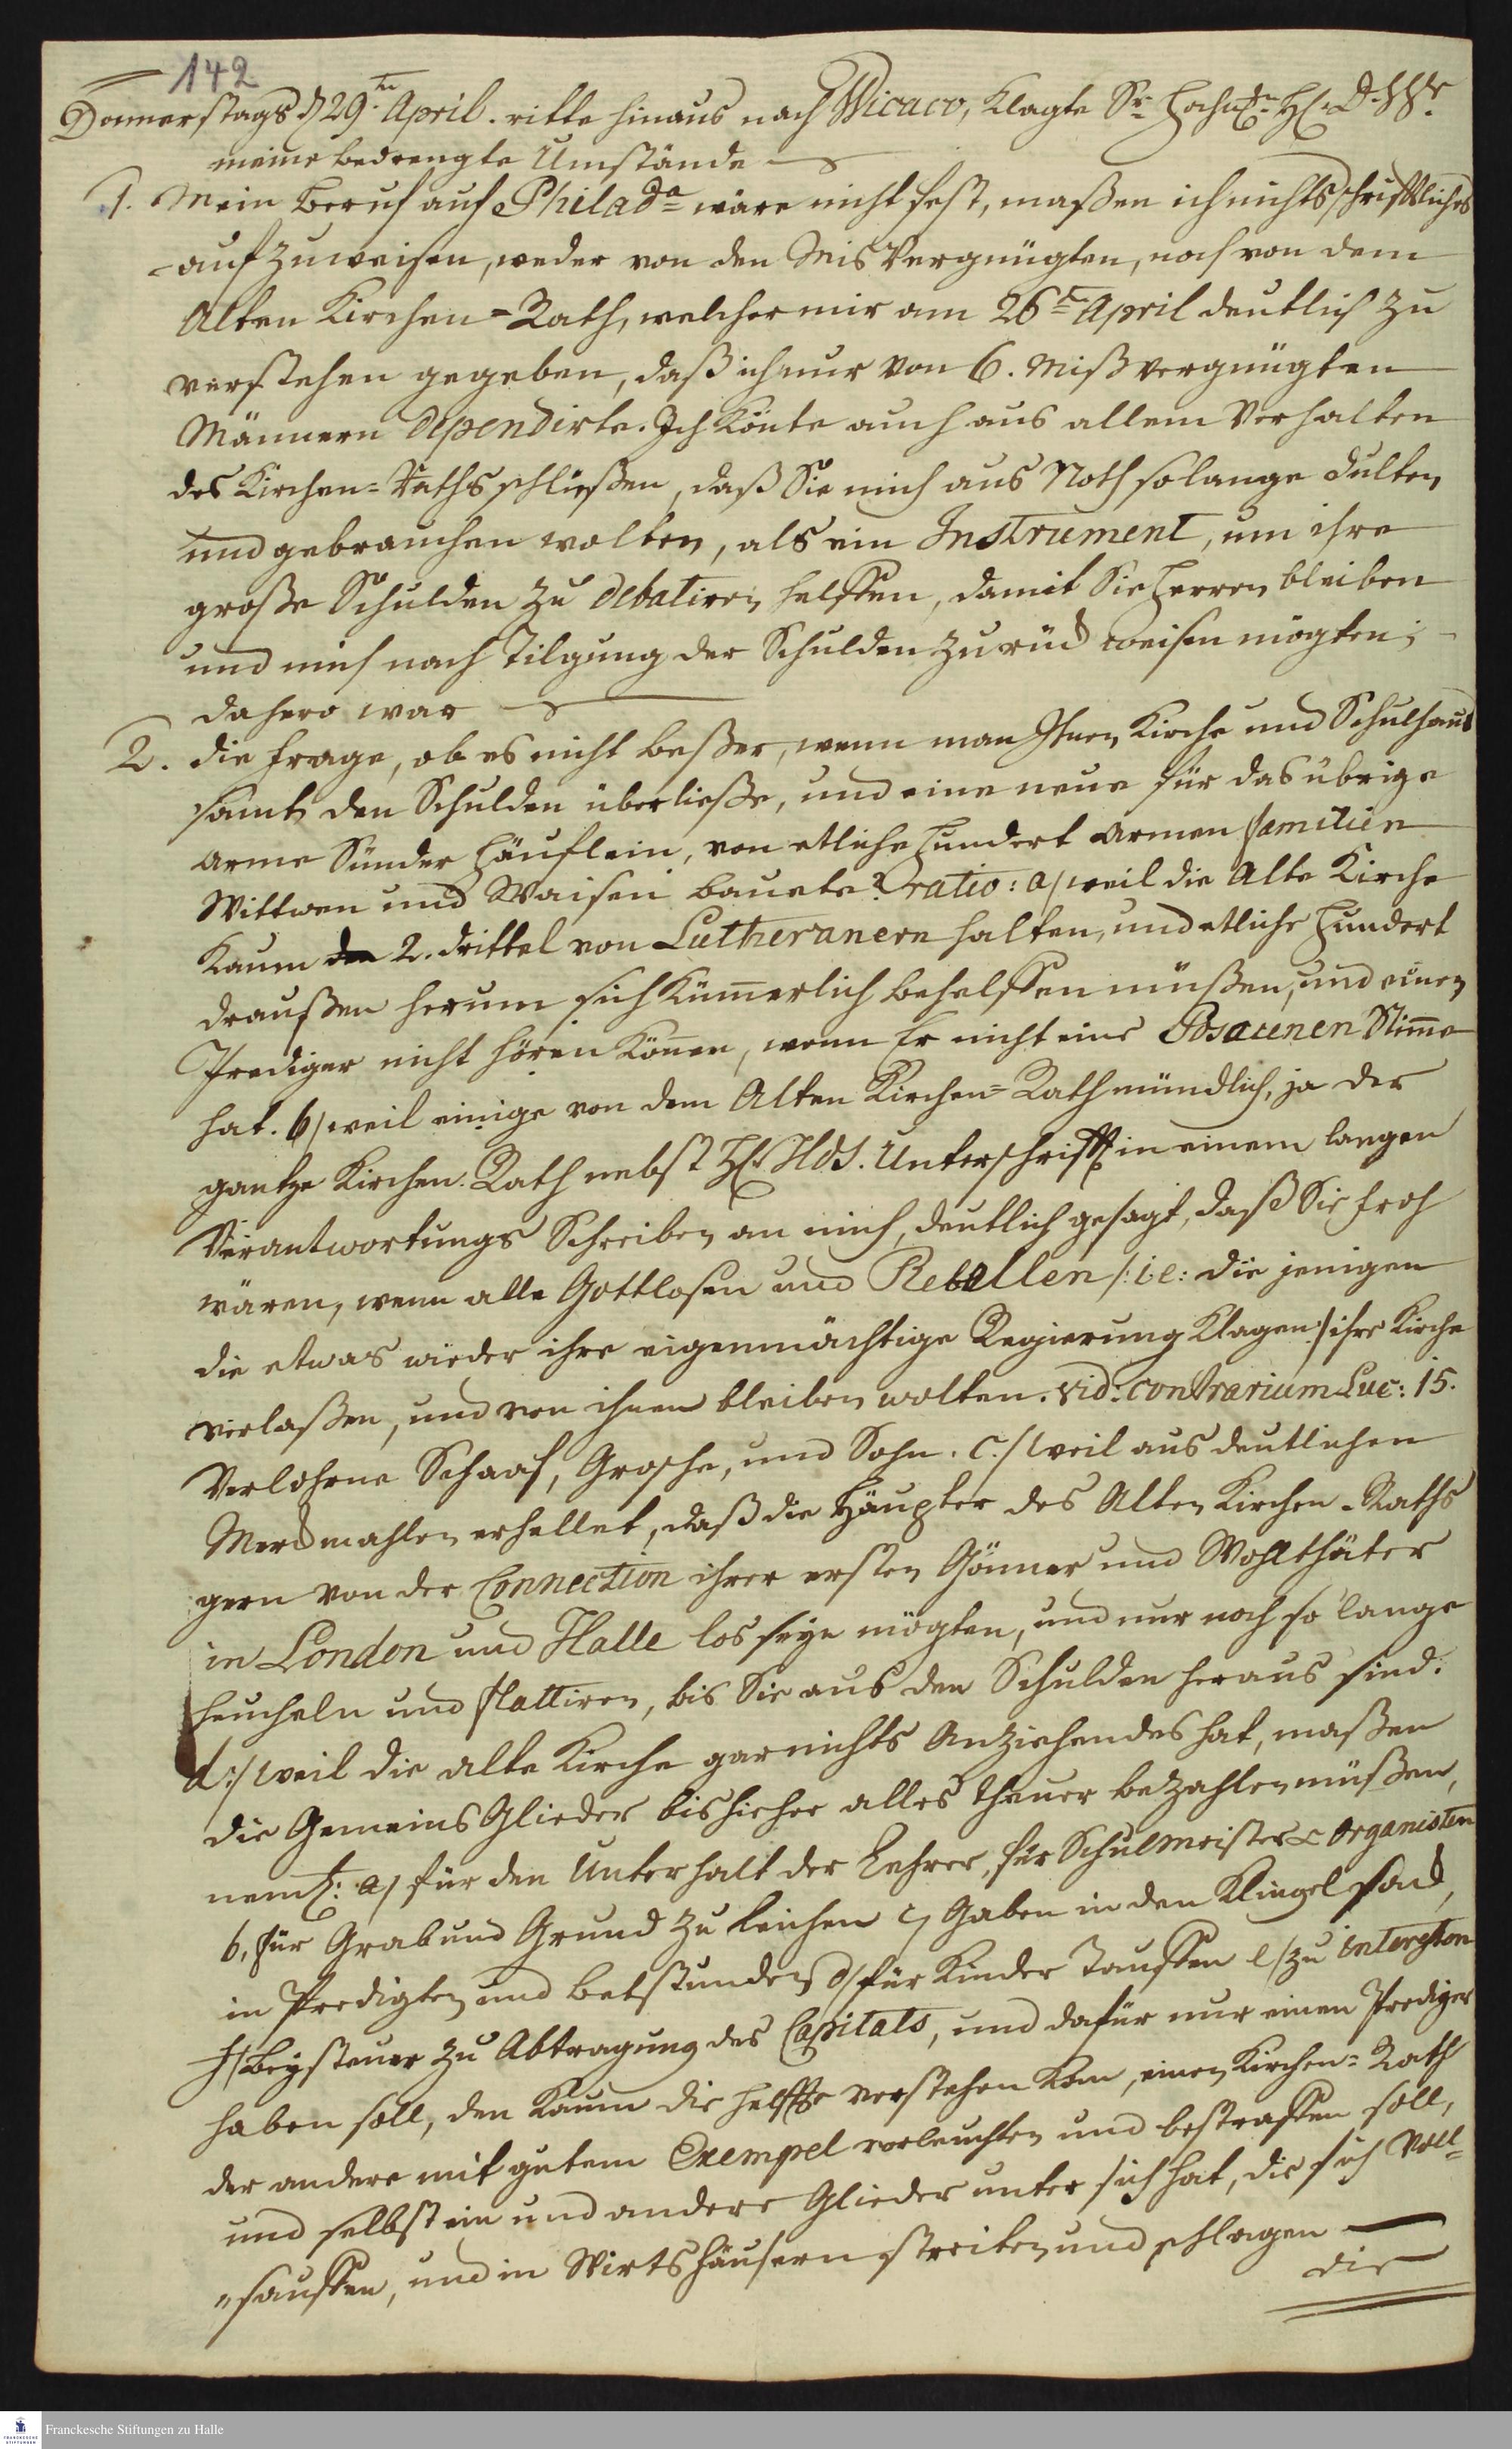 142
Donnerstags d 29.ten April. ritte hinaus nach Wicaco, klagte Sr. Hochw. H. D. Wr.
meine bedrengte Umstände
1. Mein Beruf auf Philada wäre nicht fest, maßen ich nichts schrifftliches
aufzuweisen, weder von den Mis Vergnügten, noch von dem
Alten Kirchen=Rath, welcher mir am 26t April deutlich zu
verstehen gegeben, daß ich nur von 6. Mißvergnügten
Männern dependirte. Ich könte auch aus allem Verhalten
des Kirchen=Raths schließen, daß Sie mich aus Noth so lange dulten
und gebrauchen wolten, als ein Instrument, um ihre
große Schulden zu debatiren helffen, damit Sie Herren bleiben
und mich nach Tilgung der Schulden zurück weisen mögten;
dahero war
2. die Frage, ob es nicht beßer, wenn man Ihnen Kirche und Schulhaus
samt den Schulden überließe, und eine neue für das übrige
arme Sünder Häuflein, von etliche Hundert armen familien
Wittwen und Waisen bauete? ratio: a/ weil die Alte Kirche
kaum 2. drittel von Lutheranern halten, und etliche Hundert
draußen herum sich kümerlich behelffen müßen, und einen
Prediger nicht hören könen, wenn Er nicht eine Posaunen Stime
hat. b/ weil einige von dem Alten Kirchen=Rath mündlich, ja der
gantze Kirchen-Rath nebst H. Hds. Unterschrifft in einem langen
Verantwortungs Schreiben an mich, deutlich gesagt, daß Sie froh
wären, wenn alle Gottlosen und Rebellen /: i.e: die jenigen
die etwas wieder ihre eigenmächtige Regierung klagen :/ ihre Kirche
verlaßen, und von ihnen bleiben wolten. vid: contrarium Luc: 15.
Verlohrne Schaaf, Grosche, und Sohn. c./ weil aus deutlichen
Merckmahlen erhellet, daß die Häupter des Alten Kirchen-Raths
gern von der Connection ihrer ersten Gönner und Wohlthäter
in London und Halle los seyn mögten, und nur noch so lange
heucheln und flattiren, bis Sie aus den Schulden heraus sind.
d:/ weil die alte Kirche gar nichts Anziehendes hat, maßen
die Gemeins Glieder bishieher alles theuer bezahlen müßen,
neml: a/ für den Unterhalt der Lehrer, für Schulmeister & Organisten
b, für Grab und Grund zu Leichen c, Gaben in den Klingel sack,
in Predigten und betstunden d/ für Kinder Tauffen e/ zu intereßen
f/ Beysteuer zu Abtragung des Capitals, und dafür nur einen Prediger
haben soll, den kaum die helffte verstehen kan, einen Kirchen=Rath
der andere mit gutem Exempel vorleuchten und bestraffen soll,
und selbst ein und andere Glieder unter sich hat, die sich voll=
"sauffen, und in Wirtshäusern streiten und schlagen
die
Franckesche Stiftungen zu Halle